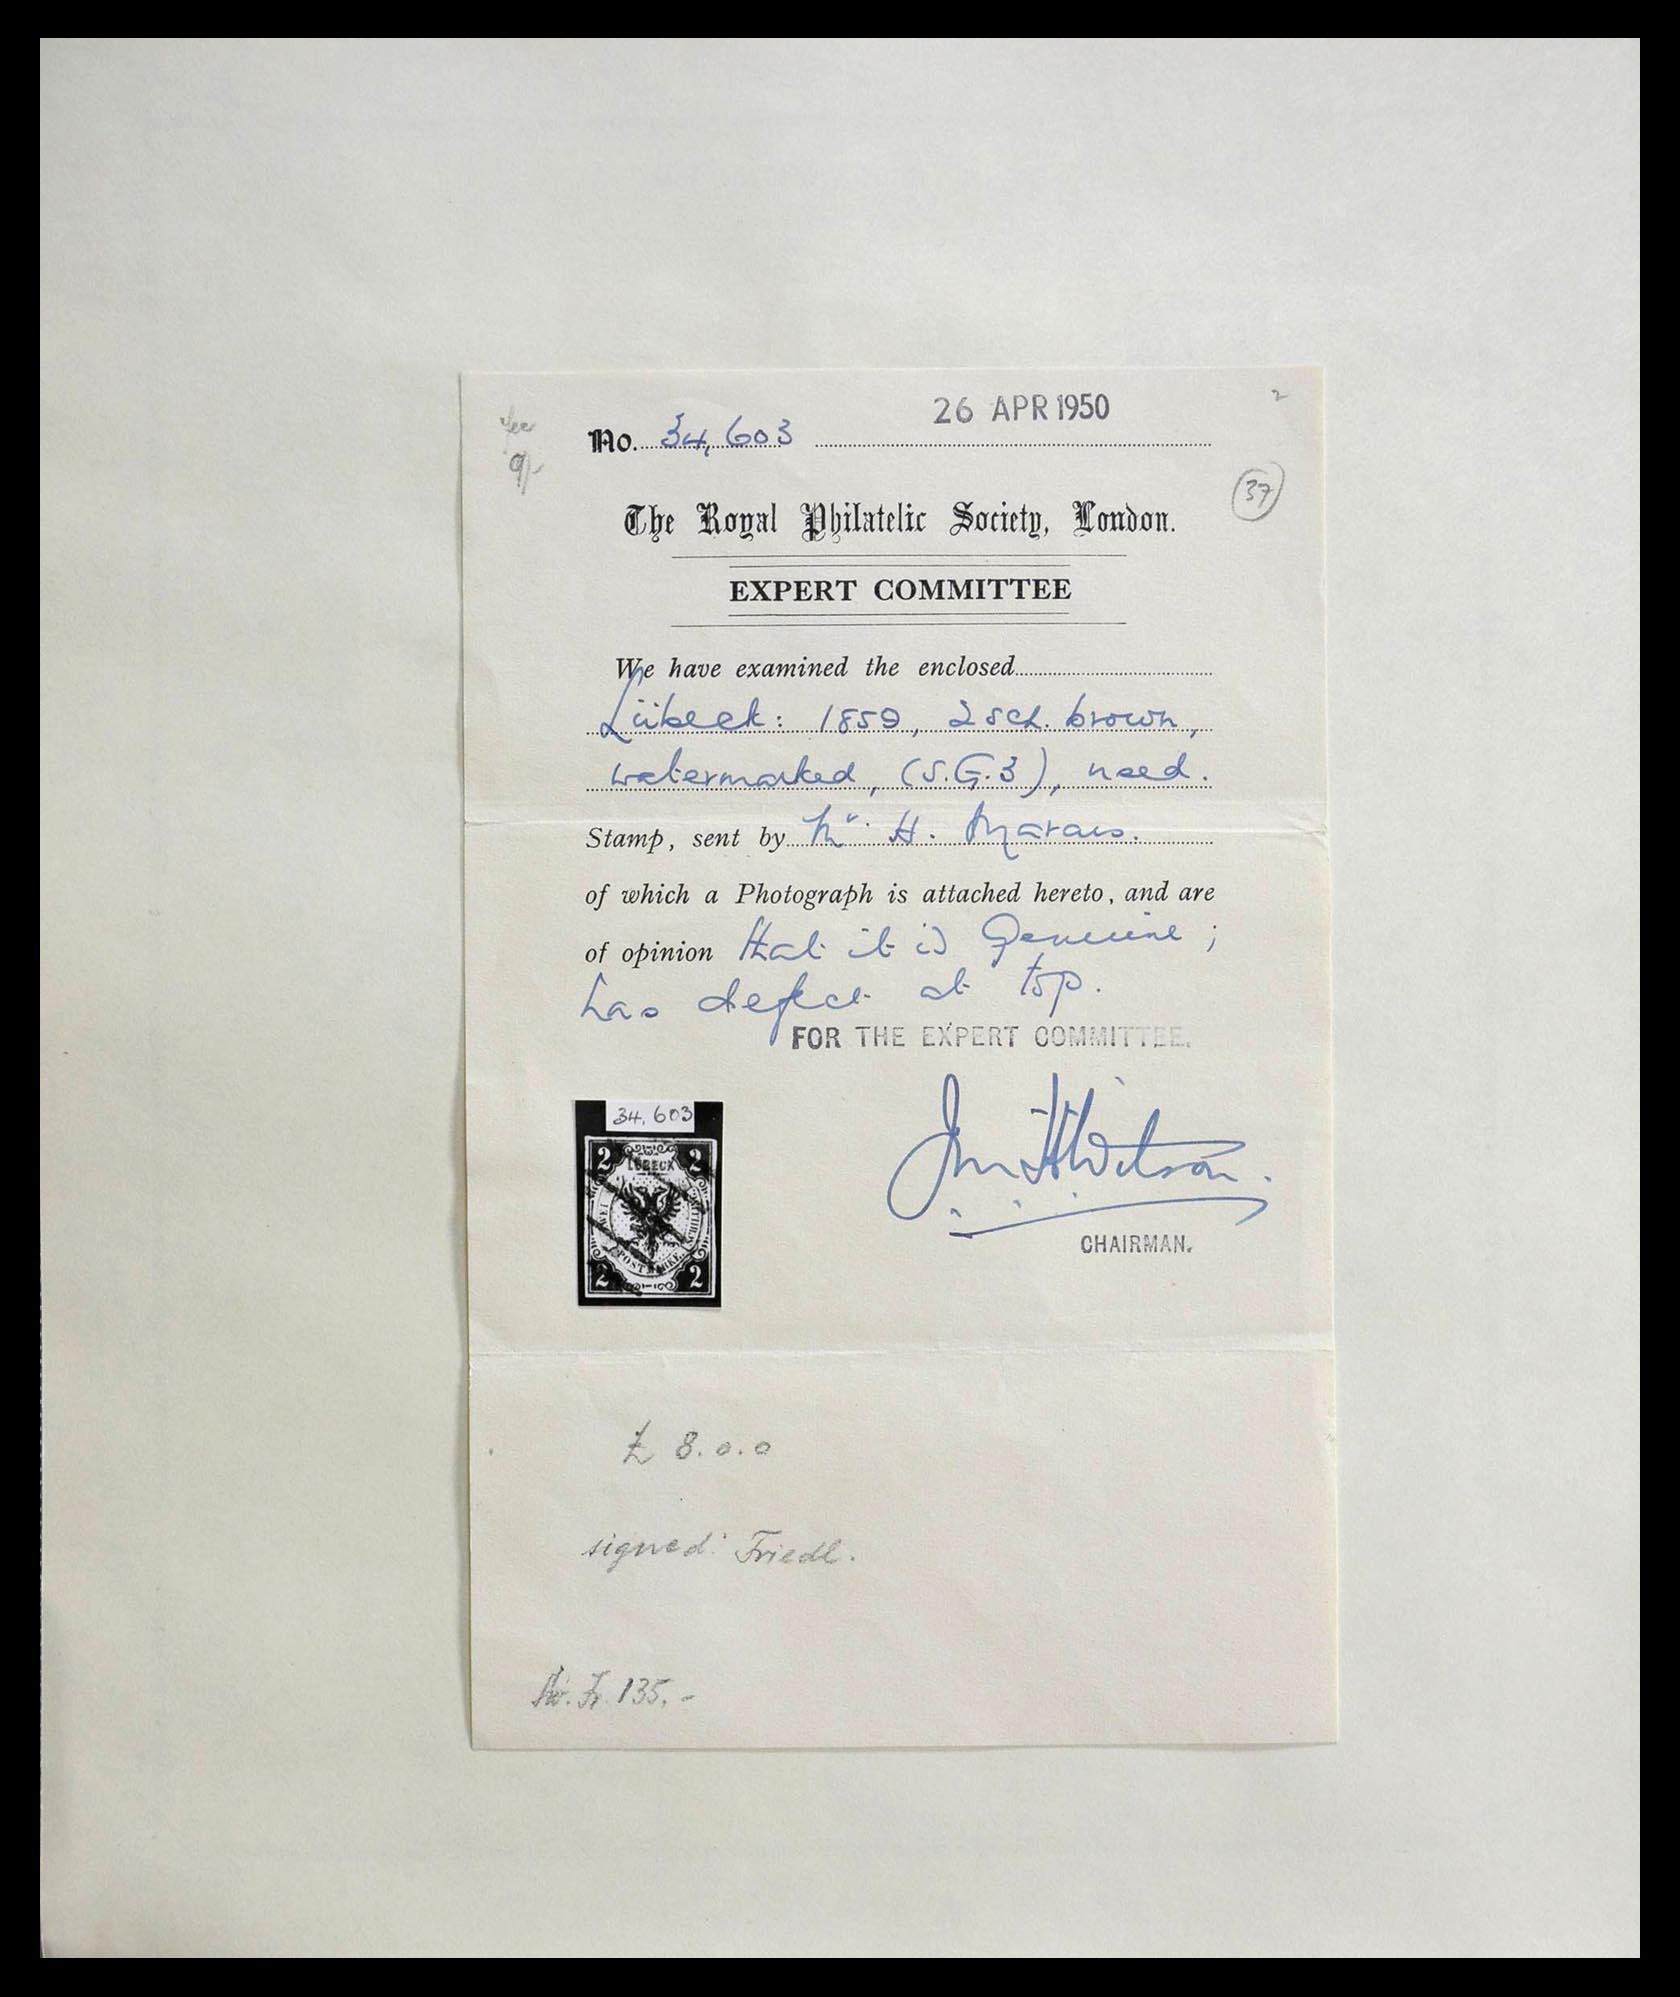 26 APR 1950
2
No. 34,603
37
The Royal Philatelic Society, London.
EXPERT COMMITTEE
We have examined the enclosed
Lübeck: 1859, 2 sch. brown,
watermarked, (S.G.3), used.
Stamp, sent by Mr. H. Marais.
of which a Photograph is attached hereto, and are
of opinion that it is Genuine;
has defect at top.
FOR THE EXPERT COMMITTEE.
34,603
2 2
LÜBECK
ZWEI SCHILLINGE
POSTMARKE
2 2
CHAIRMAN.
£ 8.0.0
signed: Friedl.
Fr. 135.-